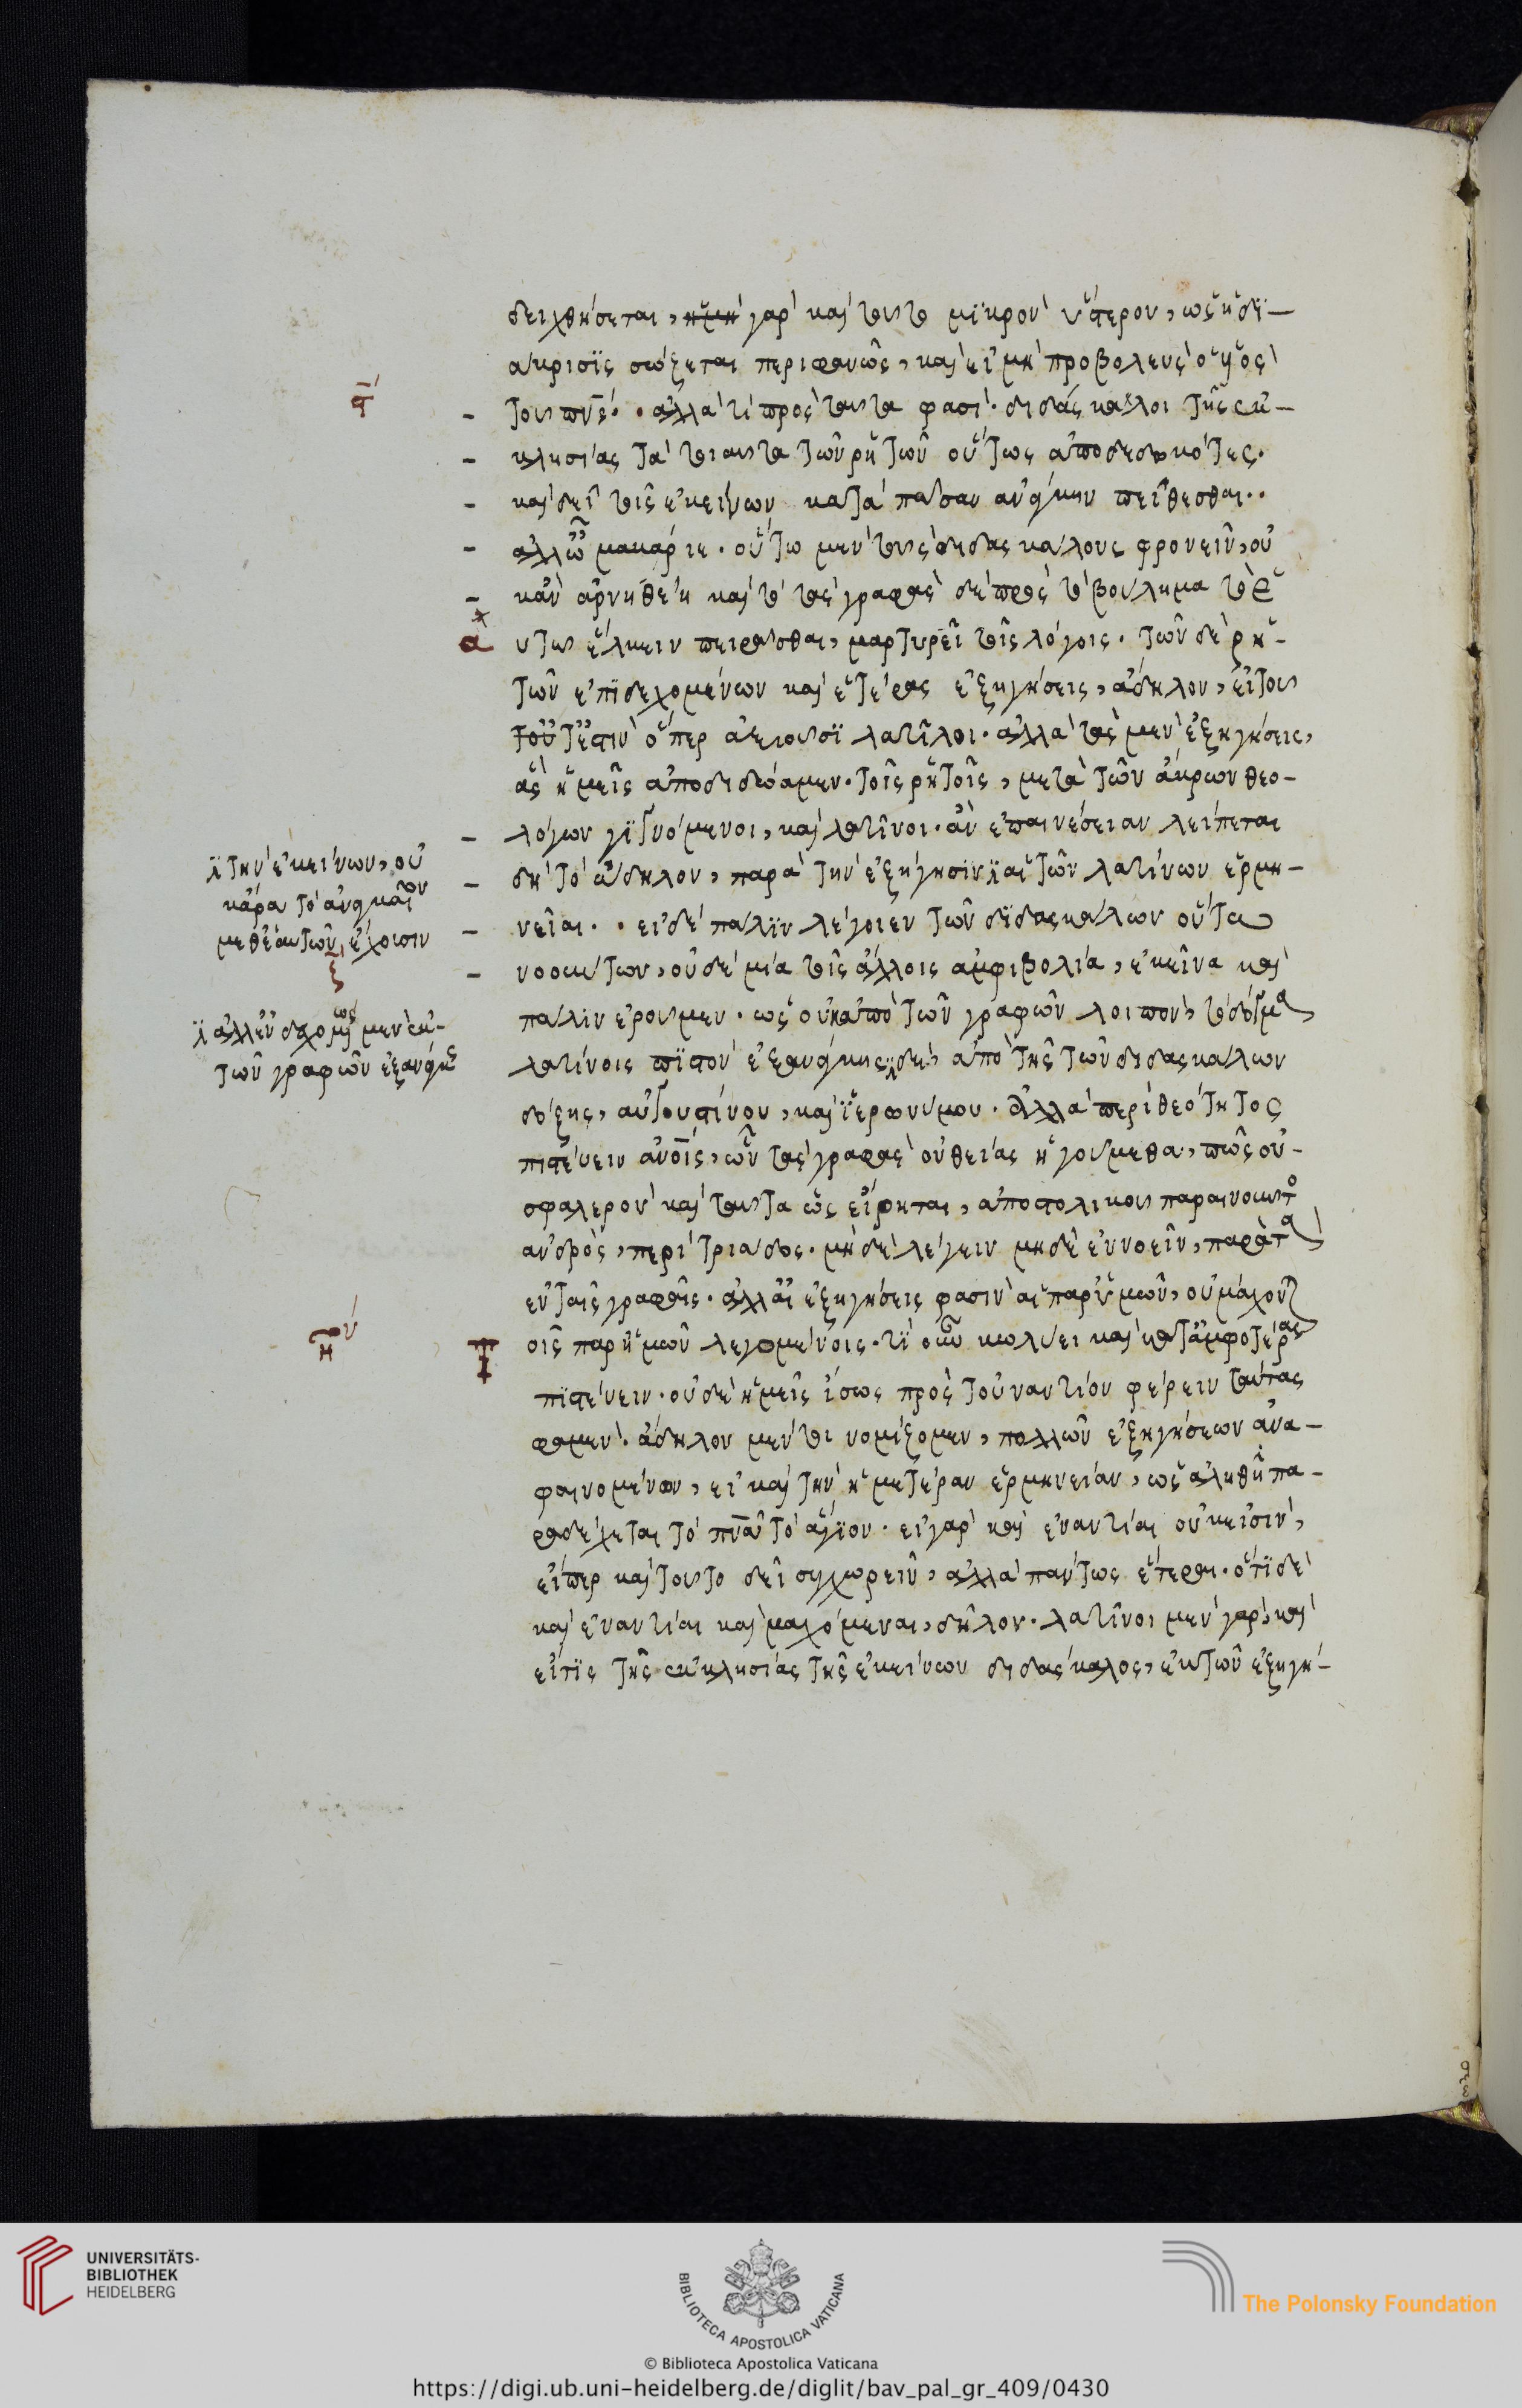 δειχθήσεται, γὰρ καὶ τοῦτο μϊκρὸν ὕστερον, ὡς ἡ δϊ-
άκρισϊς σώζεται περιφανῶς, καὶ εἰ μὴ προβολεὺς ὁ υἱὸς
τοῦ πνς. ἀλλὰ τί πρὸς ταῦτα φασί. διδάσκαλοι τῆς ἐκ-
κλησίας τὰ τοιαῦτα τῶν ῥητῶν οὕτως ἀποδεδωκότες.
καὶ δεῖ τοῖς ἐκείνων κατὰ πᾶσαν ἀνάγκην πείθεσθαι.
ἀλλ' ὦ μακάριε. οὕτω μὲν τοὺς διδασκάλους φρονεῖν, οὐ
κἂν ἀρνηθείη καὶ τὸ τὰς γραφὰς δὲ πρὸς τὸ βούλημα τὸ ἑ
αυτῶν ἕλκειν πειρᾶσθαι, μαρτυρεῖ τοῖς λόγοις. τῶν δὲ ῥη-
τῶν ἐπϊδεχομένων καὶ ἑτέρας ἐξηγήσεις, ἄδηλον, εἰ τοῦ
τοῦτ' ἐστὶν ὅπερ ἀξιοῦσϊ λατῖνοι. ἀλλὰ τὰς μὲν ἐξηγήσεις,
ἃς ἡμεῖς ἀποδιδόαμεν τοῖς ῥητοῖς, μετὰ τῶν ἄκρων θεο-
λόγων γϊνόμενοι, καὶ λατῖνοι ἂν ἐπαινέσειαν λείπεται
δὴ τὸ ἄδηλον, παρὰ τὴν ἐξήγησϊν αἱ τῶν λατίνων ἑρμη-
νεῖαι. εἰ δὲ πάλϊν λέγοιεν τῶν δϊδασκάλων οὕτω
νοούντων, οὐδὲ μία τοῖς ἄλλοις ἀμφιβολία, ἐκεῖνα καὶ
πάλϊν ἐροῦμεν. ὡς οὐκ ἀπὸ τῶν γραφῶν λοιπὸν, τὸ δόγμα
λατίνοις πϊστὸν ἐξ ἀνάγκης δὲ, ἀπὸ τῆς τῶν διδασκάλων
δόξης, αὐγουστίνου, καὶ ϊερωνύμου. ἀλλὰ περὶ θεότητος
πιστεύειν ἀνοις, ὧν τὰς γραφὰς οὐ θείας ἡγούμεθα, πῶς οὐ
σφαλερὸν καὶ ταῦτα ὡς εἴρηται, ἀποστολικοῦ παραινοῦντο
ἀνδρὸς, περὶ τριάδος. μὴ δὲ λέγειν μηδὲ ἐννοεῖν, παρὰ τὰ
ἐν ταῖς γραφαῖς. ἀλλ' αἱ ἐξηγήσεις φασὶν αἱ παρ' ὑμῶν, οὐ μάχονται
οἷς παρ' ἡμῶν λεγομένοις. τί οὖν κωλύει καὶ κατ' ἀμφοτέρας
πϊστεύειν. οὐδὲ ἡμεῖς ἴσως πρὸς τοὐναντίον φέρειν ταύτας
φαμὲν. ἄδηλον μέν τοι νομίζομεν, πολλῶν ἐξηγήσεων ἀνα-
φαινομένων, εἰ καὶ τὴν ἡμετέραν ἑρμηνείαν, ὡς ἀληθῆ πα-
ραδέχεται τὸ πνα τὸ ἅγϊον. εἰ γὰρ καὶ ἐναντίαι οὐκ εἰσὶν,
εἴπερ καὶ τοῦτο δεῖ συγχωρεῖν, ἀλλὰ πάντως ἕτεραι. ὅτϊ δὲ
καὶ ἐναντίαι καὶ μαχόμεναι, δῆλον. λατῖνοι μὲν γὰρ, καὶ
εἴ τϊς τῆς ἐκκλησίας τῆς ἐκείνων διδάσκαλος, ἐκ τῶν ἐξηγή-
τὴν ἐκείνων, οὐ
κἄρα τὸ ἀναγκαῖον
μεθ' ἑαυτῶν ἔχουσιν
μὲν ἐκ
τῶν γραφῶν ἐξ ανάγκης
UNIVERSITÄTS-
BIBLIOTHEK
HEIDELBERG
BIBLIOTECA APOSTOLICA VATICANA
The Polonsky Foundation
© Biblioteca Apostolica Vaticana
https://digi.ub.uni-heidelberg.de/diglit/bav_pal_gr_409/0430